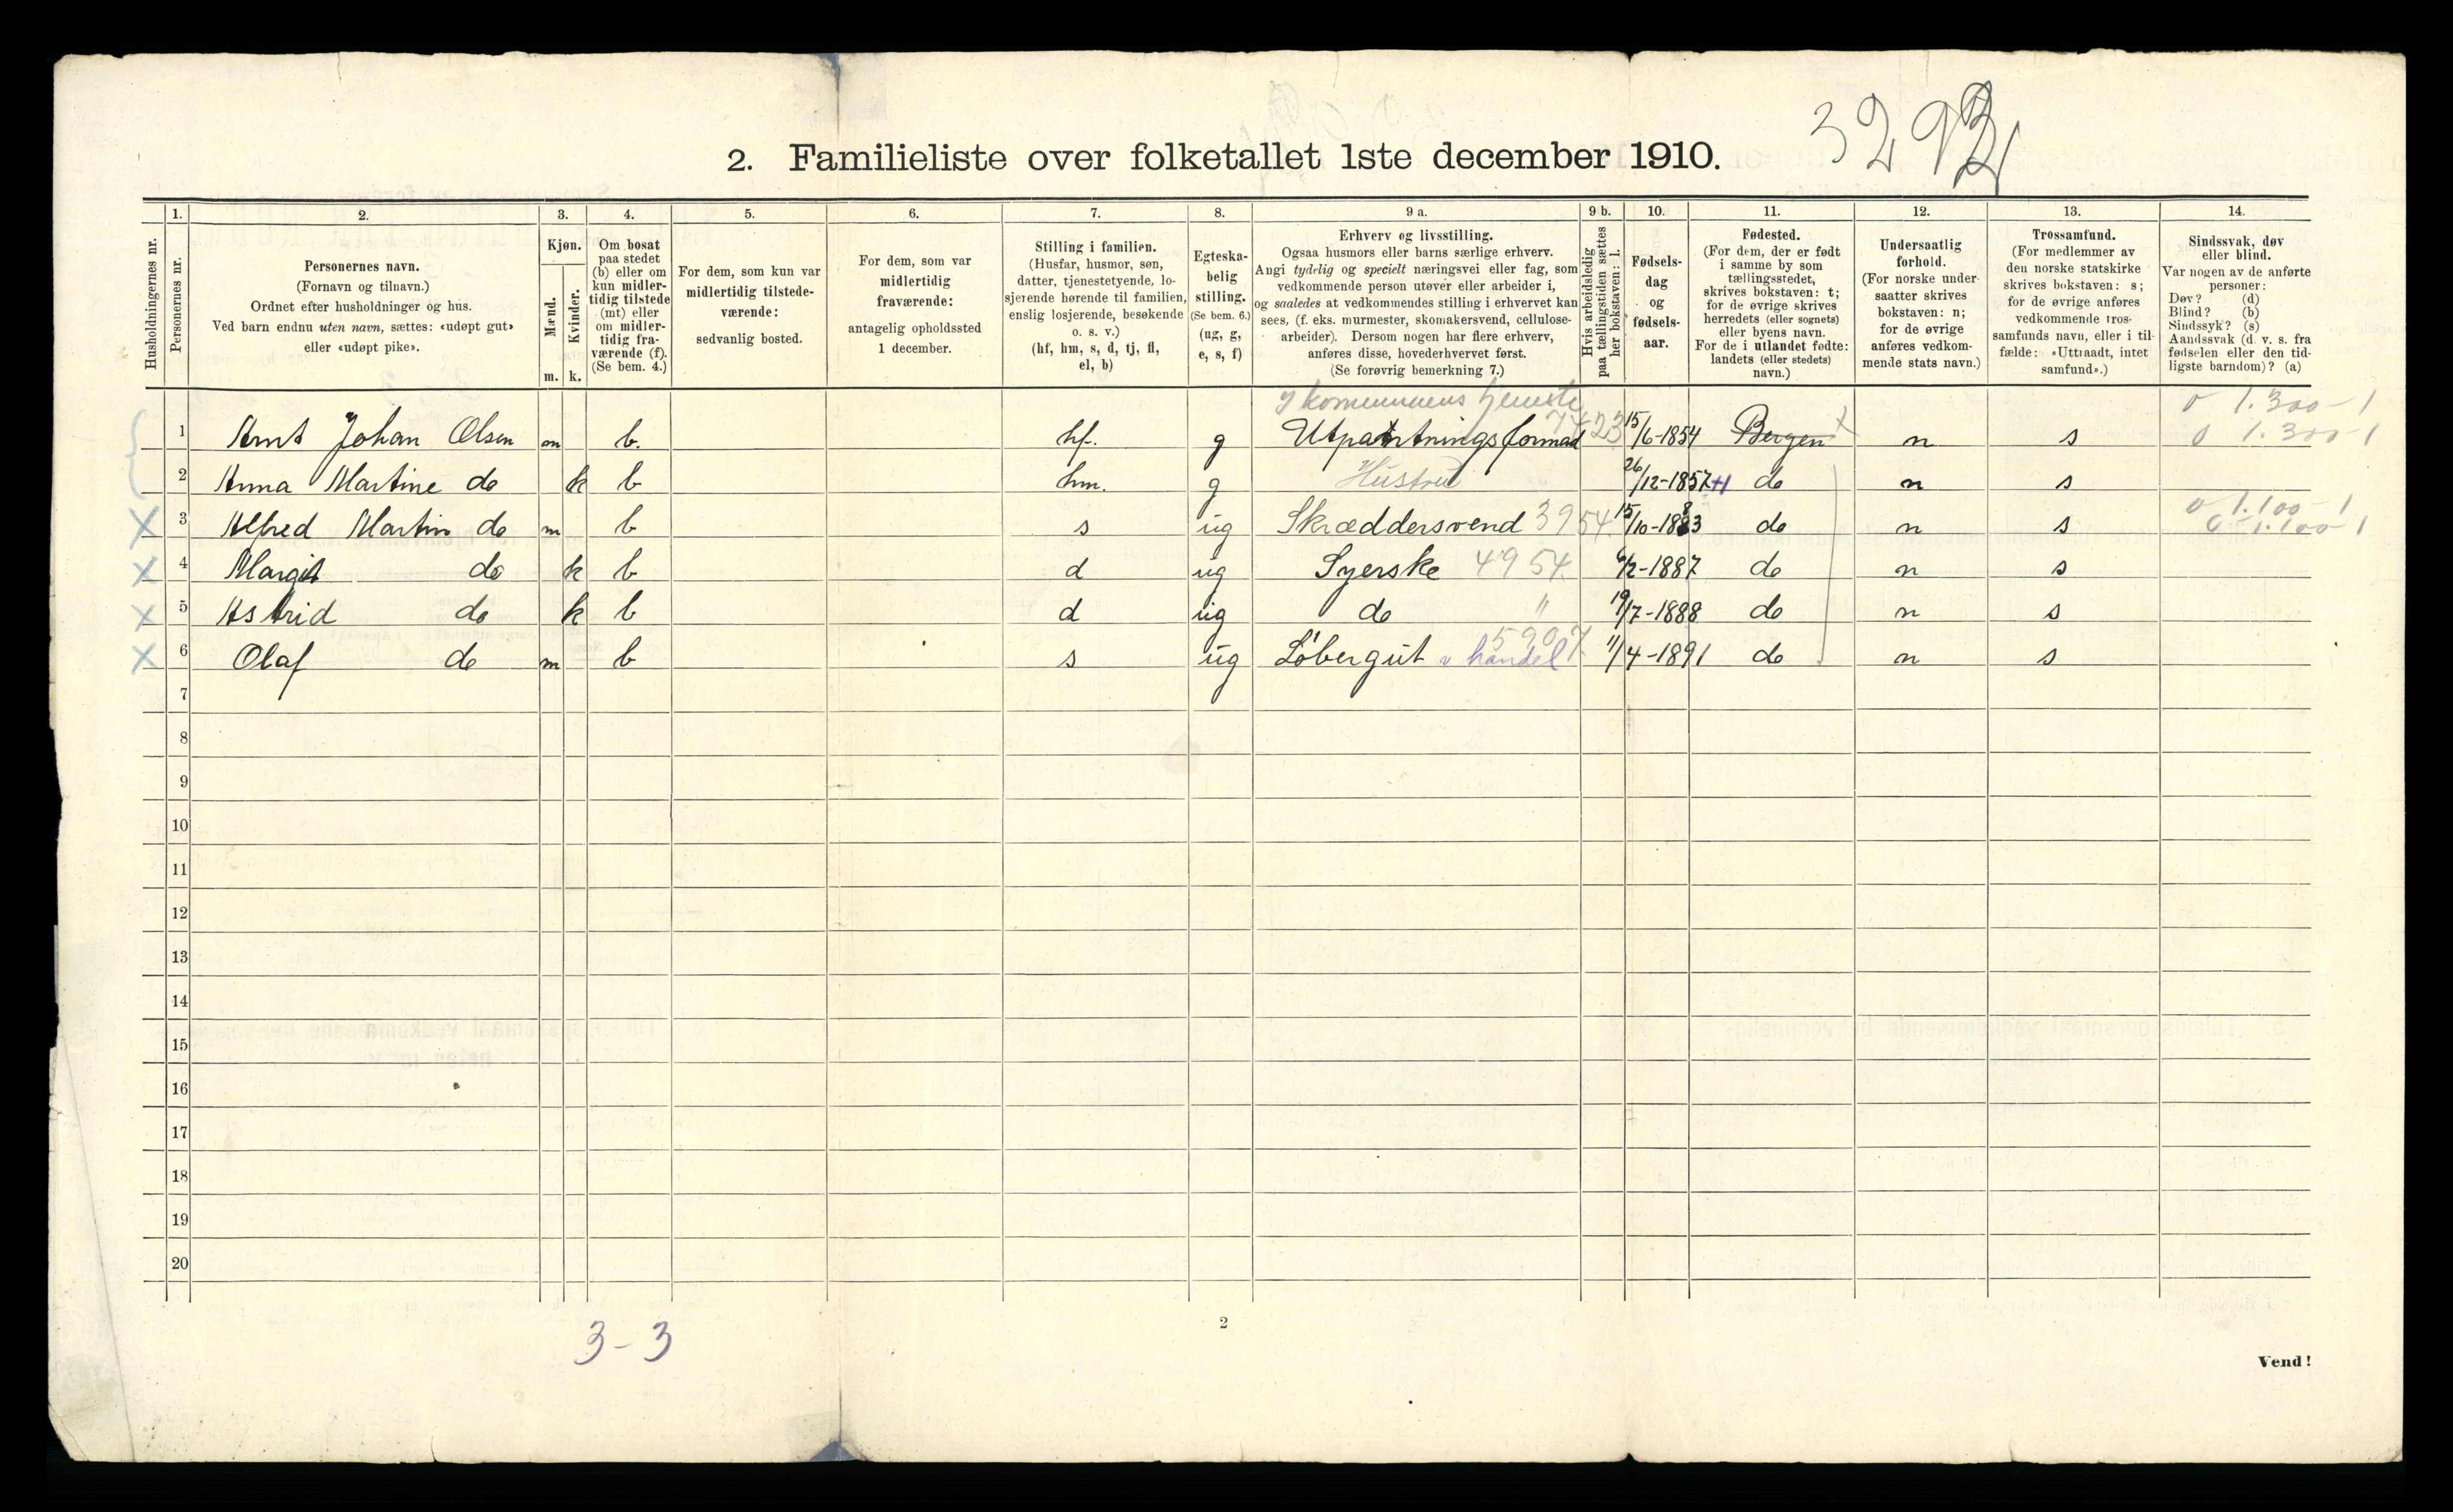 3292
2. Familieliste over folketallet 1ste december 1910.
1. 2. 3. 4. 5. 6. 7. 8. 9 a. 9 b. 10. 11. 12. 13. 14.
Husholdningernes nr.
Personernes nr.
Personernes navn.
(Fornavn og tilnavn.)
Ordnet efter husholdninger og hus.
Ved barn endnu uten navn, sættes: «udøpt gut»
eller «udøpt pike».
Kjøn.
Mænd.
Kvinder.
m. k.
Om bosat
paa stedet
(b) eller om
kun midler-
tidig tilstede
(mt) eller
om midler-
tidig fra-
værende (f).
(Se bem. 4.)
For dem, som kun var
midlertidig tilstede-
værende:
sedvanlig bosted.
For dem, som var
midlertidig
fraværende:
antagelig opholdssted
1 december.
Stilling i familien.
(Husfar, husmor, søn,
datter, tjenestetyende, lo-
sjerende hørende til familien,
enslig losjerende, besøkende
o. s. v.)
(hf, hm, s, d, tj, fl,
el, b)
Egteska-
belig
stilling.
(Se bem. 6.)
(ug, g,
e, s, f)
Erhverv og livsstilling.
Ogsaa husmors eller barns særlige erhverv.
Angi tydelig og specielt næringsvei eller fag, som
vedkommende person utøver eller arbeider i,
og saaledes at vedkommendes stilling i erhvervet kan
sees, (f. eks. murmester, skomakersvend, cellulose-
arbeider). Dersom nogen har flere erhverv,
anføres disse, hovederhvervet først.
(Se forøvrig bemerkning 7.)
Hvis arbeidsledig
paa tællingstiden sættes
her bokstaven: l.
Fødsels-
dag
og
fødsels-
aar.
Fødested.
(For dem, der er født
i samme by som
tællingsstedet,
skrives bokstaven: t;
for de øvrige skrives
herredets (eller sognets)
eller byens navn.
For de i utlandet fødte:
landets (eller stedets)
navn.)
Undersaatlig
forhold.
(For norske under-
saatter skrives
bokstaven: n;
for de øvrige
anføres vedkom-
mende stats navn.)
Trossamfund.
(For medlemmer av
den norske statskirke
skrives bokstaven: s;
for de øvrige anføres
vedkommende tros-
samfunds navn, eller i til-
fælde: «Uttraadt, intet
samfund».)
Sindssvak, døv
eller blind.
Var nogen av de anførte
personer:
Døv? (d)
Blind? (b)
Sindssyk? (s)
Aandssvak (d. v. s. fra
fødselen eller den tid-
ligste barndom)? (a)
kommunens tjeneste 0 1.300-1
1 Arnt Johan Olsen m b. hf. g Utpantningsformand 7423 15/6-1854 Bergen n s 0 1.300-1
2 Anna Martine do k b hm. g Hustru 26/12-1857 +1 do n s
0 1.100-1
X 3 Alfred Martin do m b s ug Skræddersvend 3954 15/10-1883 do n s 0 1.100-1
X 4 Margit do k b d ug Syerske 4954 /2-1887 do n s
X 5 Astrid do k b d ug do " 19/7-1888 do n s
X 6 Olaf do m b s ug Løbergut v handel 5907 11/4-1891 do n s
7
8
9
10
11
12
13
14
15
16
17
18
19
20
3-3
2
Vend!